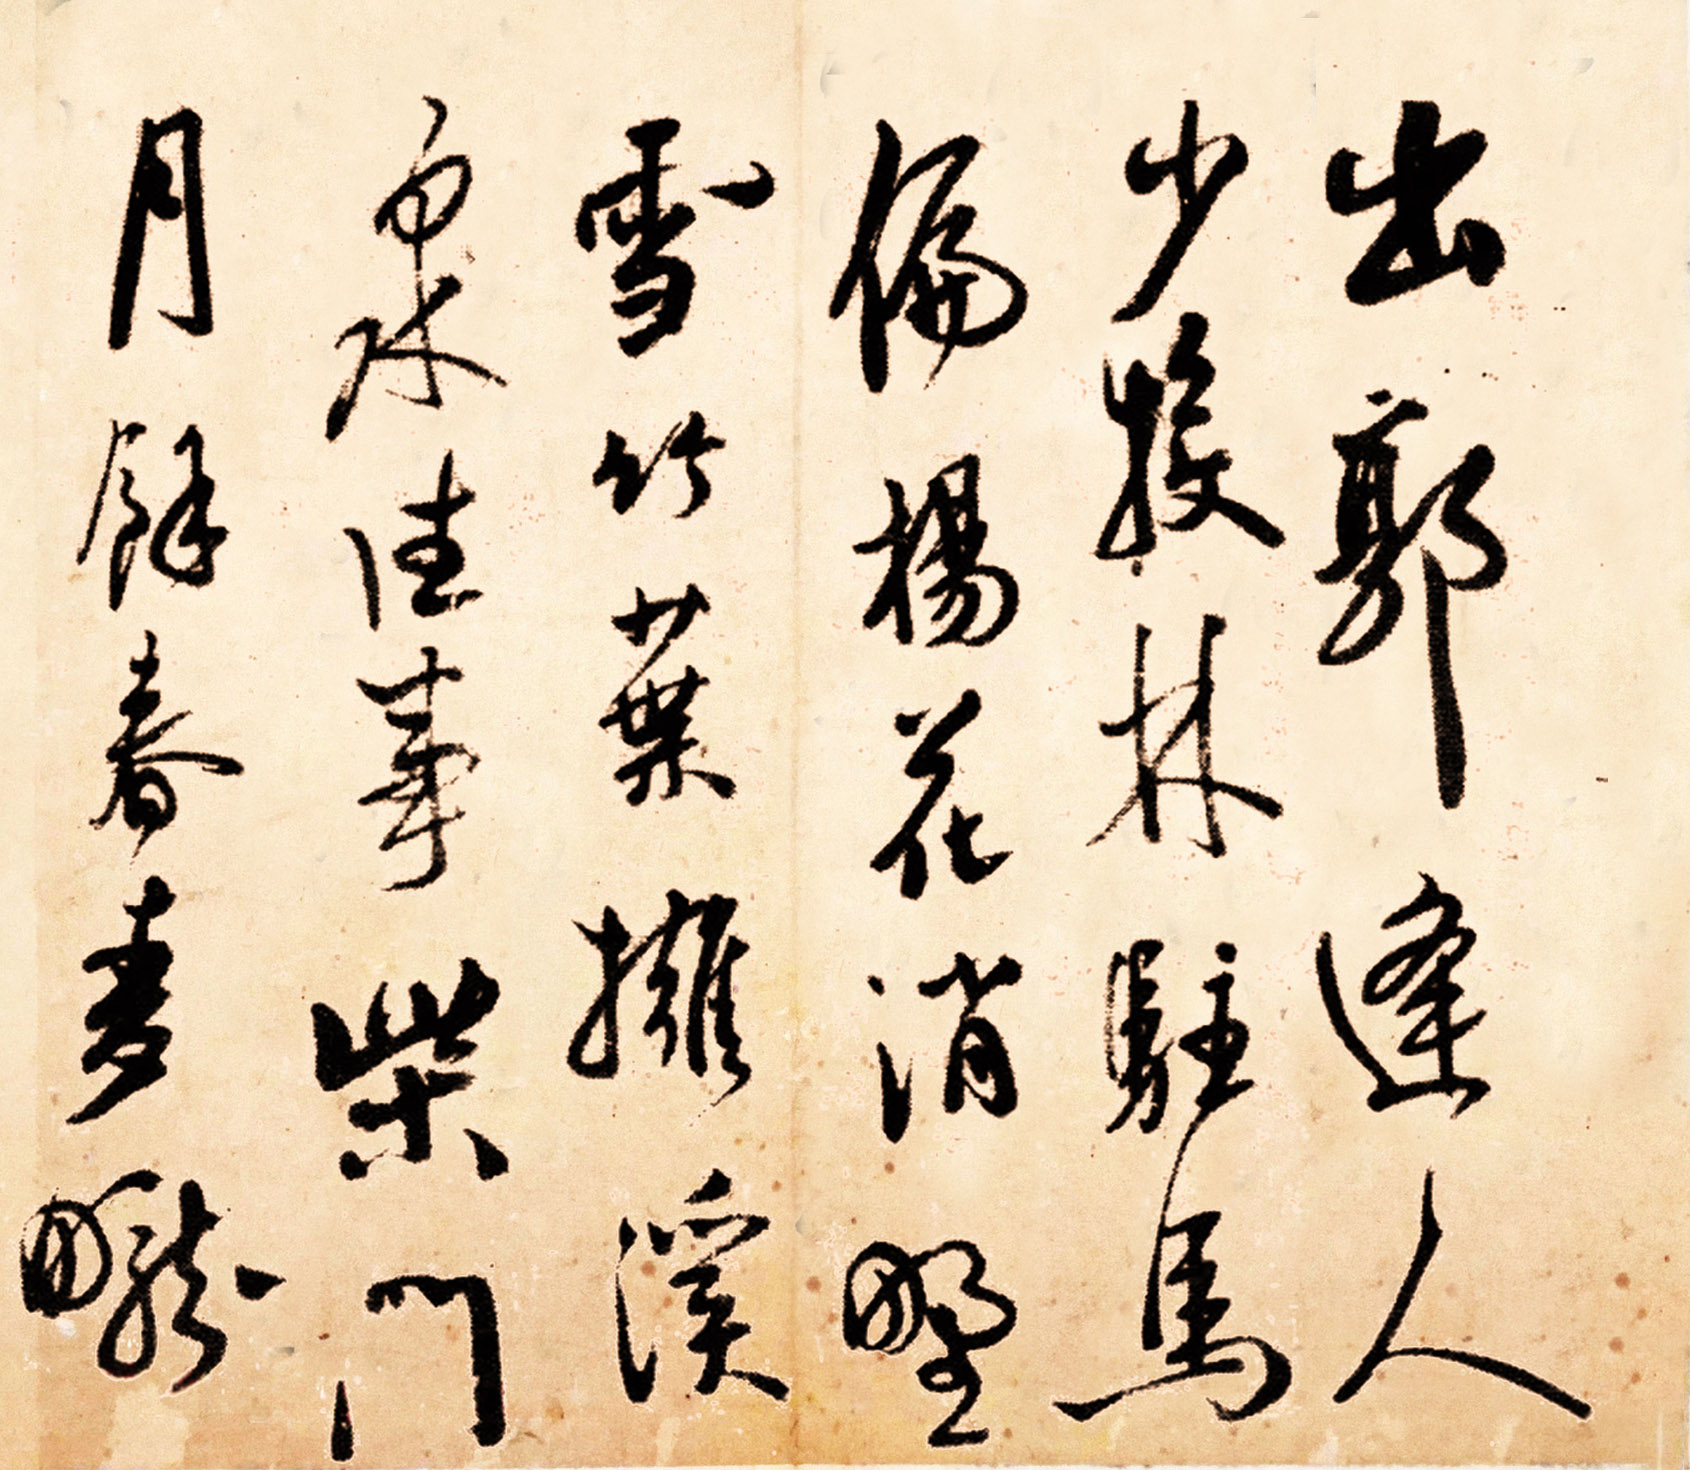 出郭逢人
少投林駐馬
偏楊花消野
雪竹葉擁溪
泉佳事柴門
月餘春麥